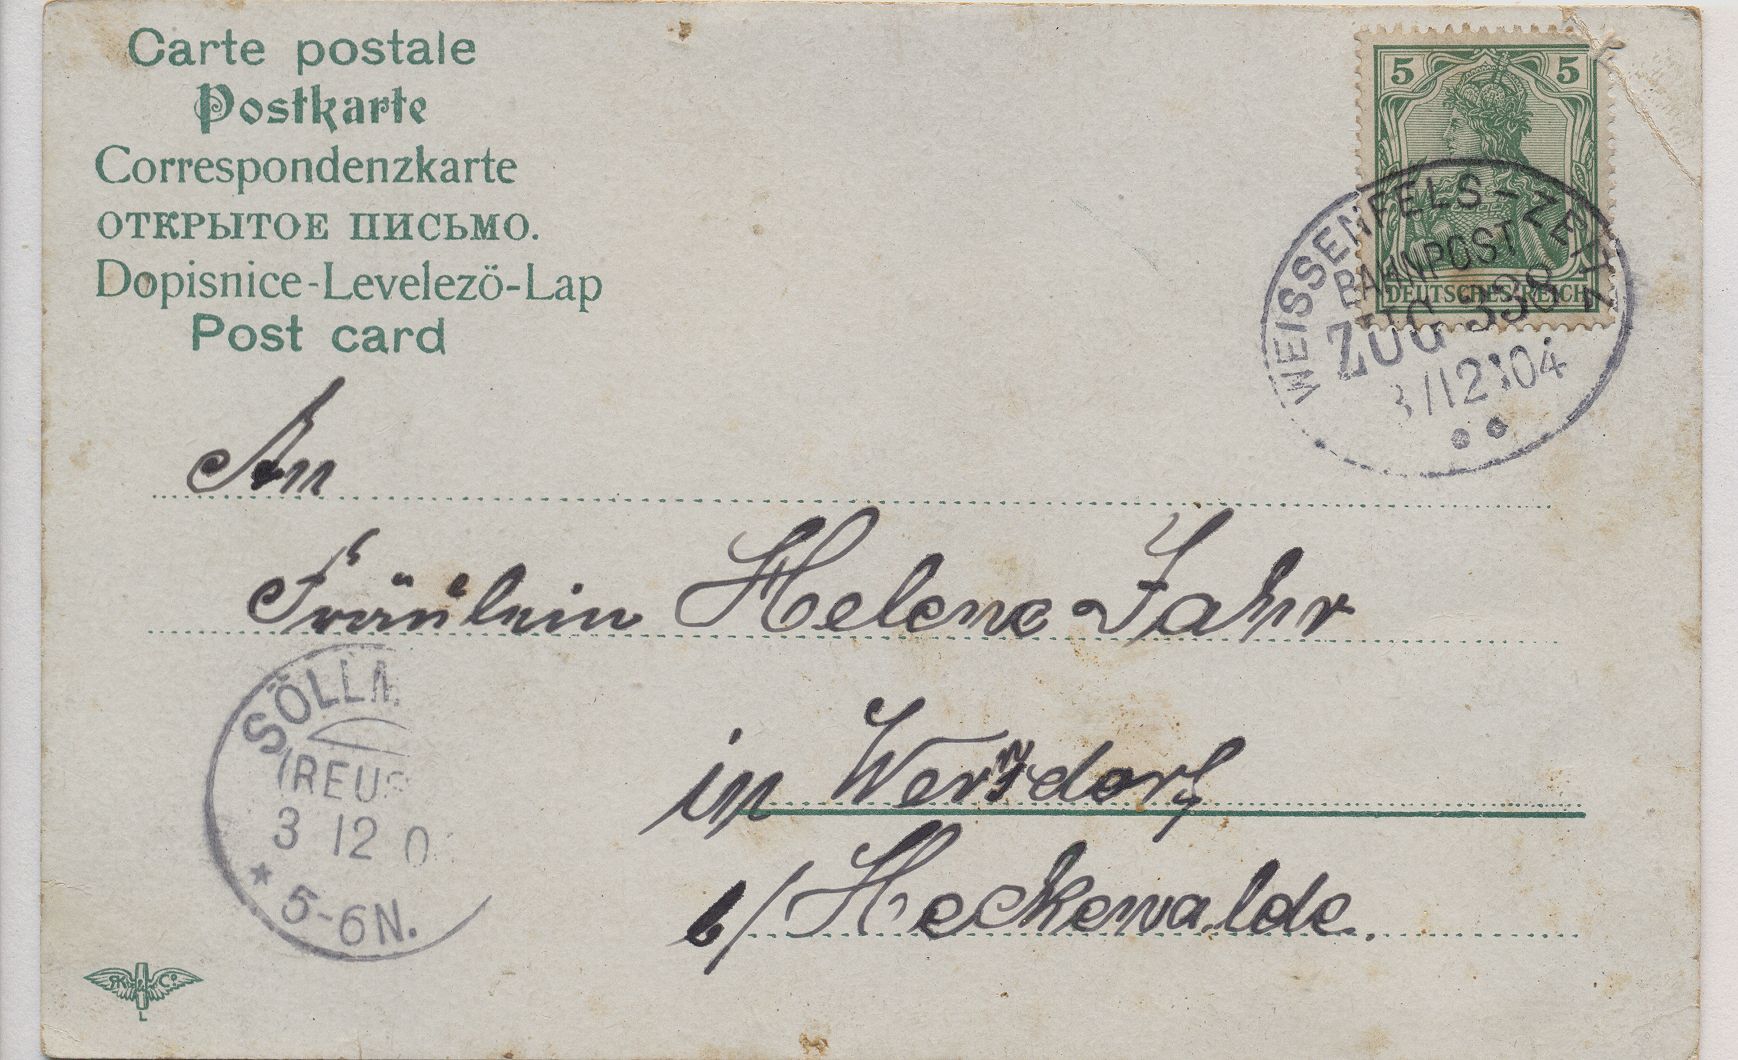 Carte postale
Postkarte
Correspondenzkarte
ОТКРЫТОЕ ПИСЬМО.
Dopisnice-Levelezö-Lap
Post card
5 5
DEUTSCHES REICH
WEISSENFELS-ZEITZ
BAHNPOST
ZUG 338
3/12 04
An
Fräulein Helene Jahr
in Wersdorf
b/ Heckewalde.
SÖLLM
(REUS
3 12 0
* 5-6N.
L